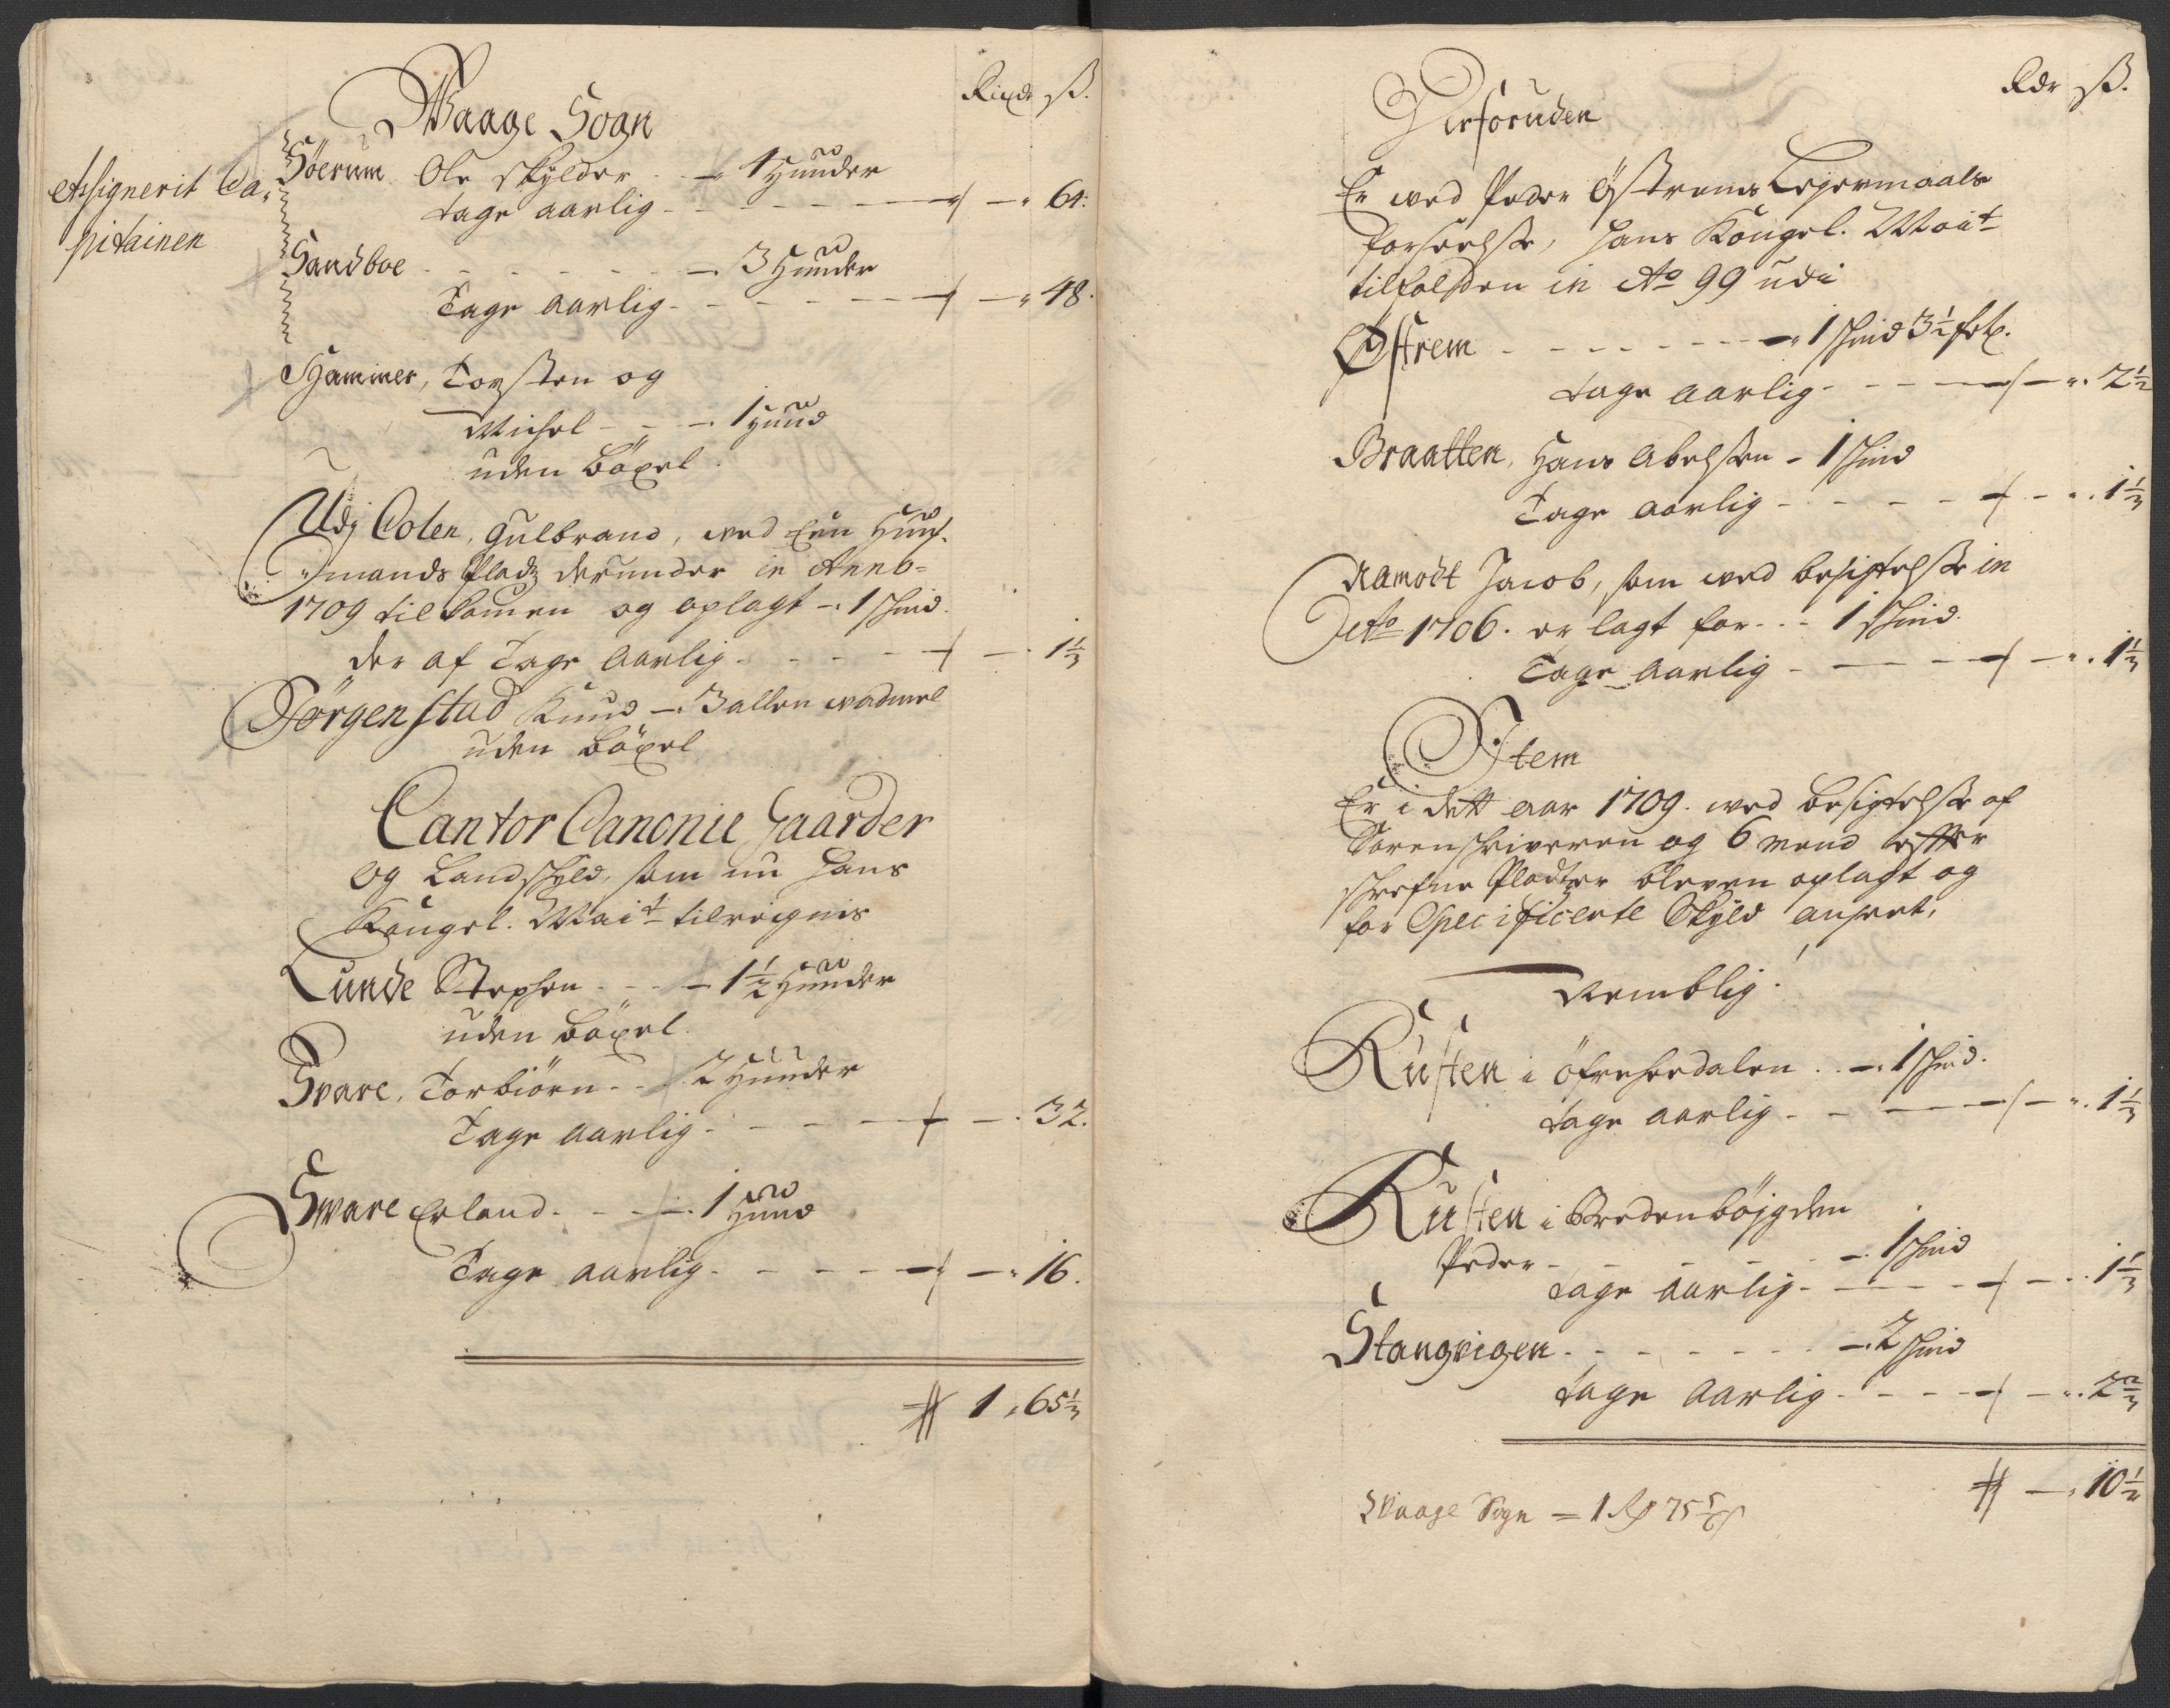 Waage Sogn
Rixdr ß.
Assignerit Ca-
pitainen
Söerum Ole skylder - 4 Hunder
tage aarlig - - - 64:
Sandboe - - - 3 Hunder
Tage aarlig - - - 48.
Hammer, Torsten og
Michel - - - 1 Hund
uden böxel.
Udj Colen, Gulbrand, ved een Huuß-
mands Pladz derunder in Anno-
1709 tilkomen og oplagt - 1 skind.
der af Tage aarlig - - - 1 1/3
Jörgenstad Knud - 3 allen wadmel
uden böxel
Cantor Canonie Gaarder
og Landskyld, som nu Hans
Kongel. Mait tileignis
Lunde Stephen - - - 1 1/2 Hunder
uden böxel.
Svare, Torbiörn - - 2 Hunder
Tage aarlig - - - 32.
Sware Erland - - - 1 Hund
Tage aarlig - - - 16.
# 1 „ 65 1/3
Derforuden
Rdr ß.
Er ved Peder Östrems Leyermaals
forseelße, Hans Kongel. Mait
tilfalden in Ao 99 udi
Østrem - - - 1 skind 3 1/2
tage aarlig - - - 2 1/2
Braatten, Hans Abelßen - 1 skind
Tage aarlig - - - 1 1/3
Aamodt Jacob, som ved besigtelße in
1706. er lagt for - - 1 skind.
Tage aarlig - - - 1 1/3
Item
Er i dett aar 1709. ved besigtelße af
Sorenskriveren og 6 mend effter
skrefne Pladtzer bleven oplagt og
for Specificerte Skyld ansaat,
Nemblig.
Rusten i öfreheedalen - 1 skind.
tage aarlig - - - 1 1/3
Rusten i Bredenböjgden
Peder - - - 1 skind
tage aarlig - - - 1 1/3
Stangvigen - - - 2 skind
tage aarlig - - - 2 2/3
# - „ 10 1/2
Waage Sogn = 1 Rd 75 5/6 ß